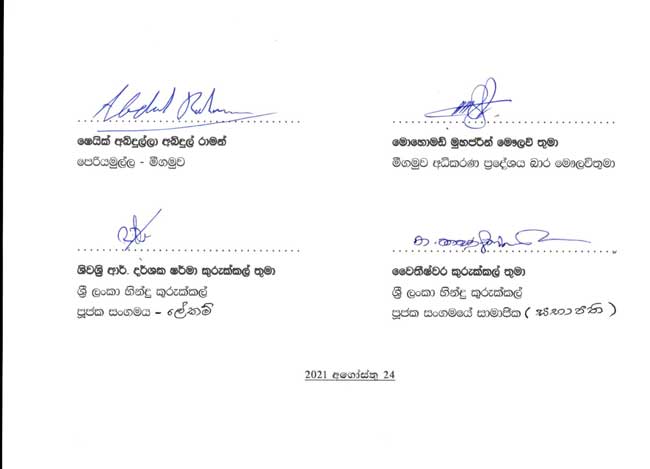 Abdul Rahman
ෂෙයික් අබ්දුල්ලා අබ්දුල් රාමන්
පෙරියමුල්ල - මීගමුව
මොහොමඩ් මුහජරීන් මෞලවි තුමා
මීගමුව අධිකරණ ප්‍රදේශය භාර මෞලවිතුමා
ශිවශ්‍රී ආර්. දර්ශක ෂර්මා කුරුක්කල් තුමා
ශ්‍රී ලංකා හින්දු කුරුක්කල්
පූජක සංගමය - ලේකම්
වෛතීෂ්වර කුරුක්කල් තුමා
ශ්‍රී ලංකා හින්දු කුරුක්කල්
පූජක සංගමයේ සාමාජික (සභාපති)
2021 අගෝස්තු 24